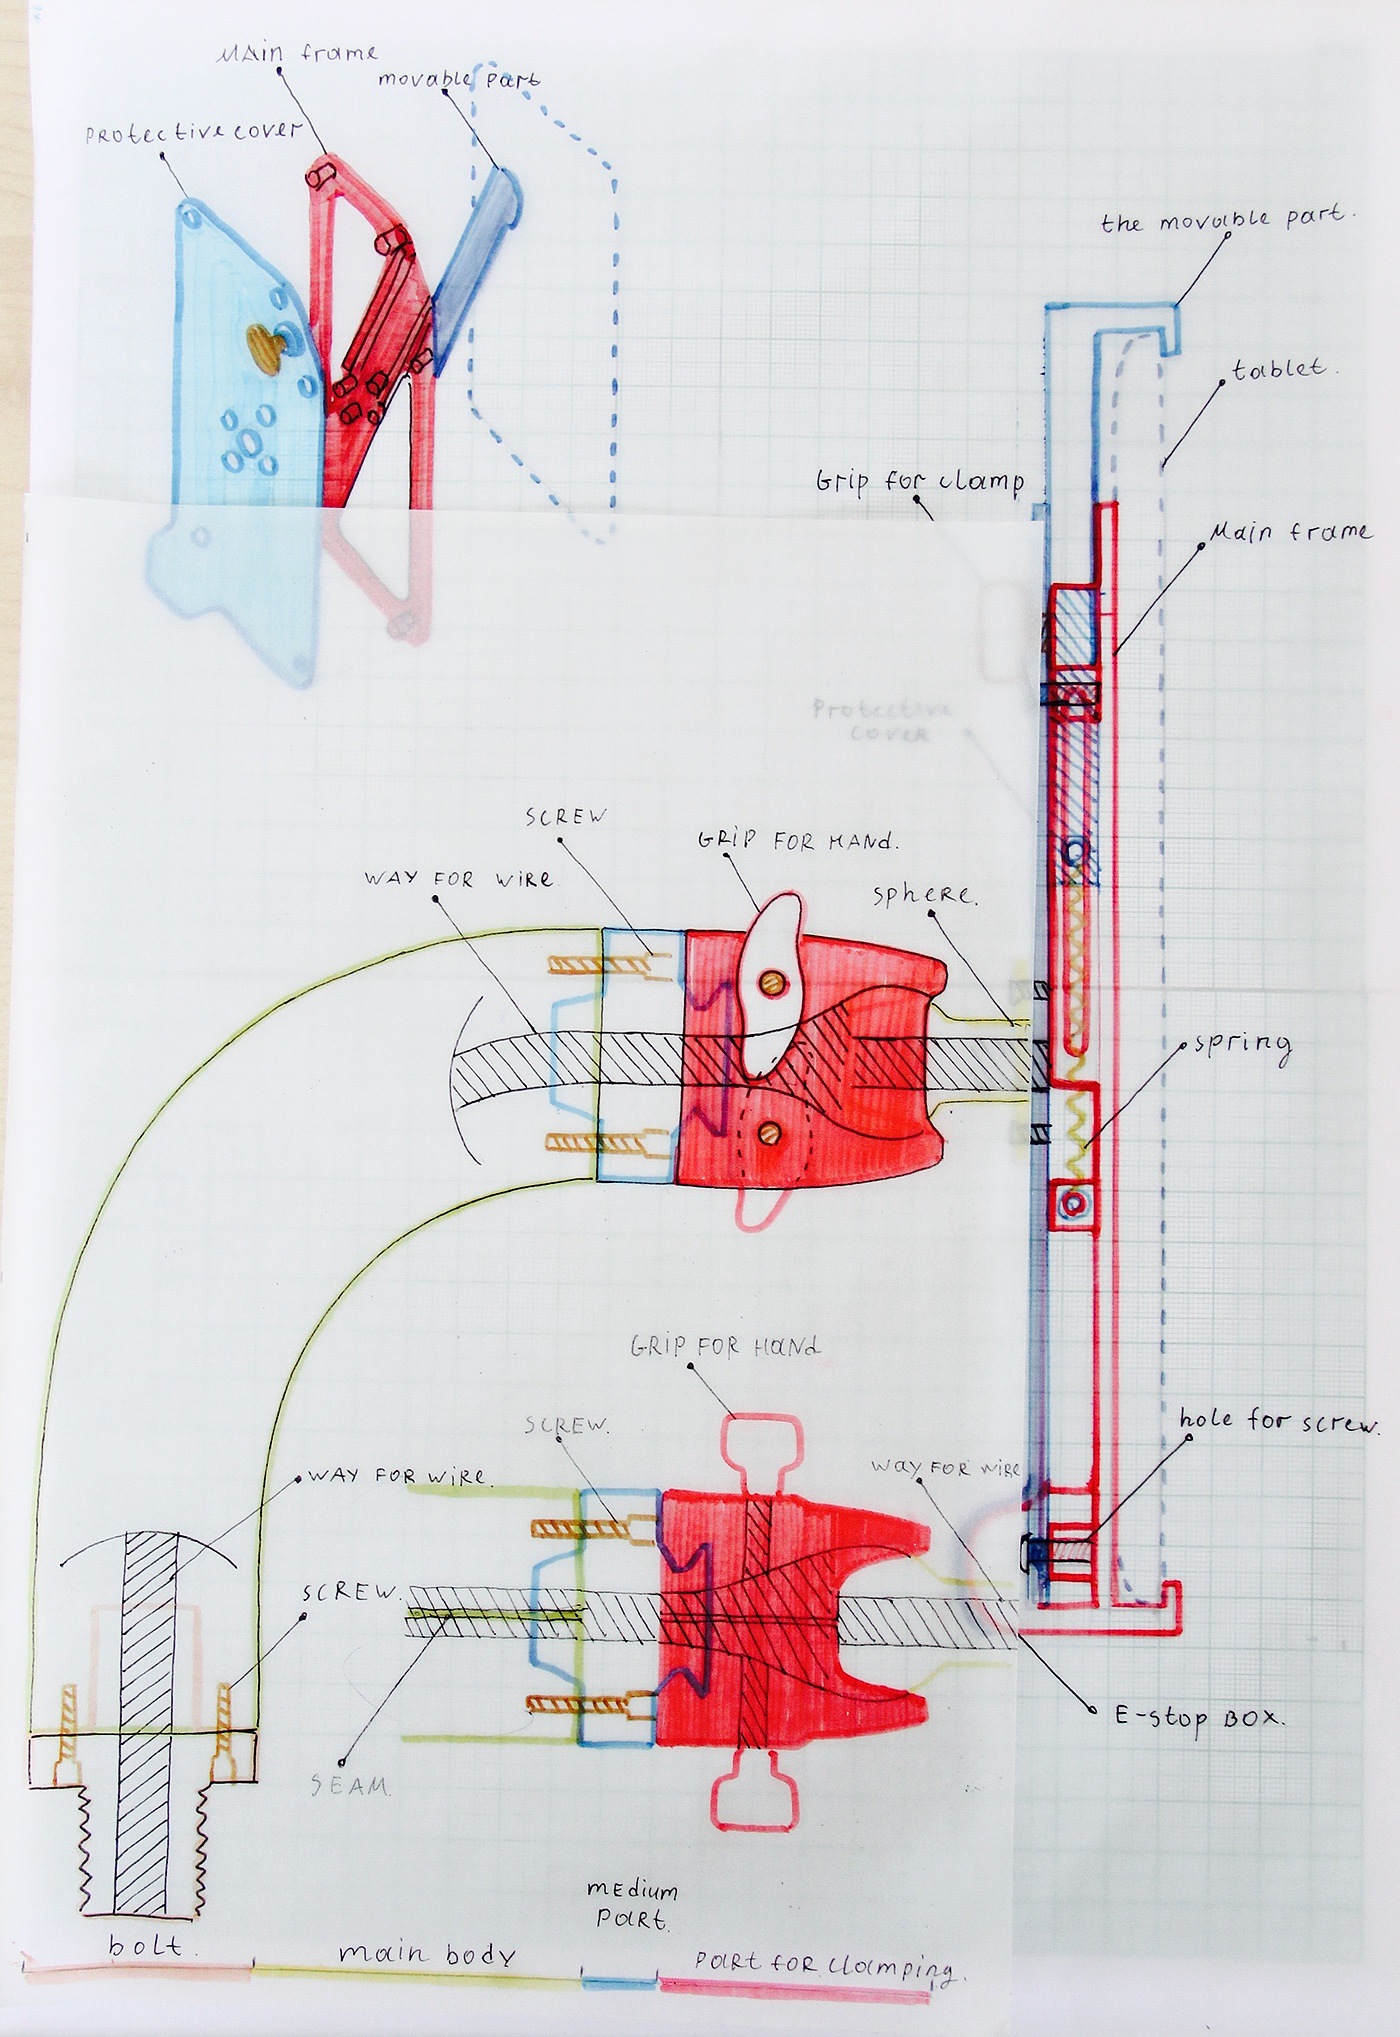 Main frame
movable part
Protective cover
the movable part.
tablet.
Grip for clamp
Main frame
Protective
cover
SCREW
GRIP FOR HANd.
WAY FOR WIRE
SPHERE.
spring
GRIP FOR HANd
hole for screw.
SCREW.
WAY FOR WIRE
WAY FOR WIRE.
SCREW.
E-stop BOX.
SEAM.
medium
part.
bolt.
main body
Part for clamping.